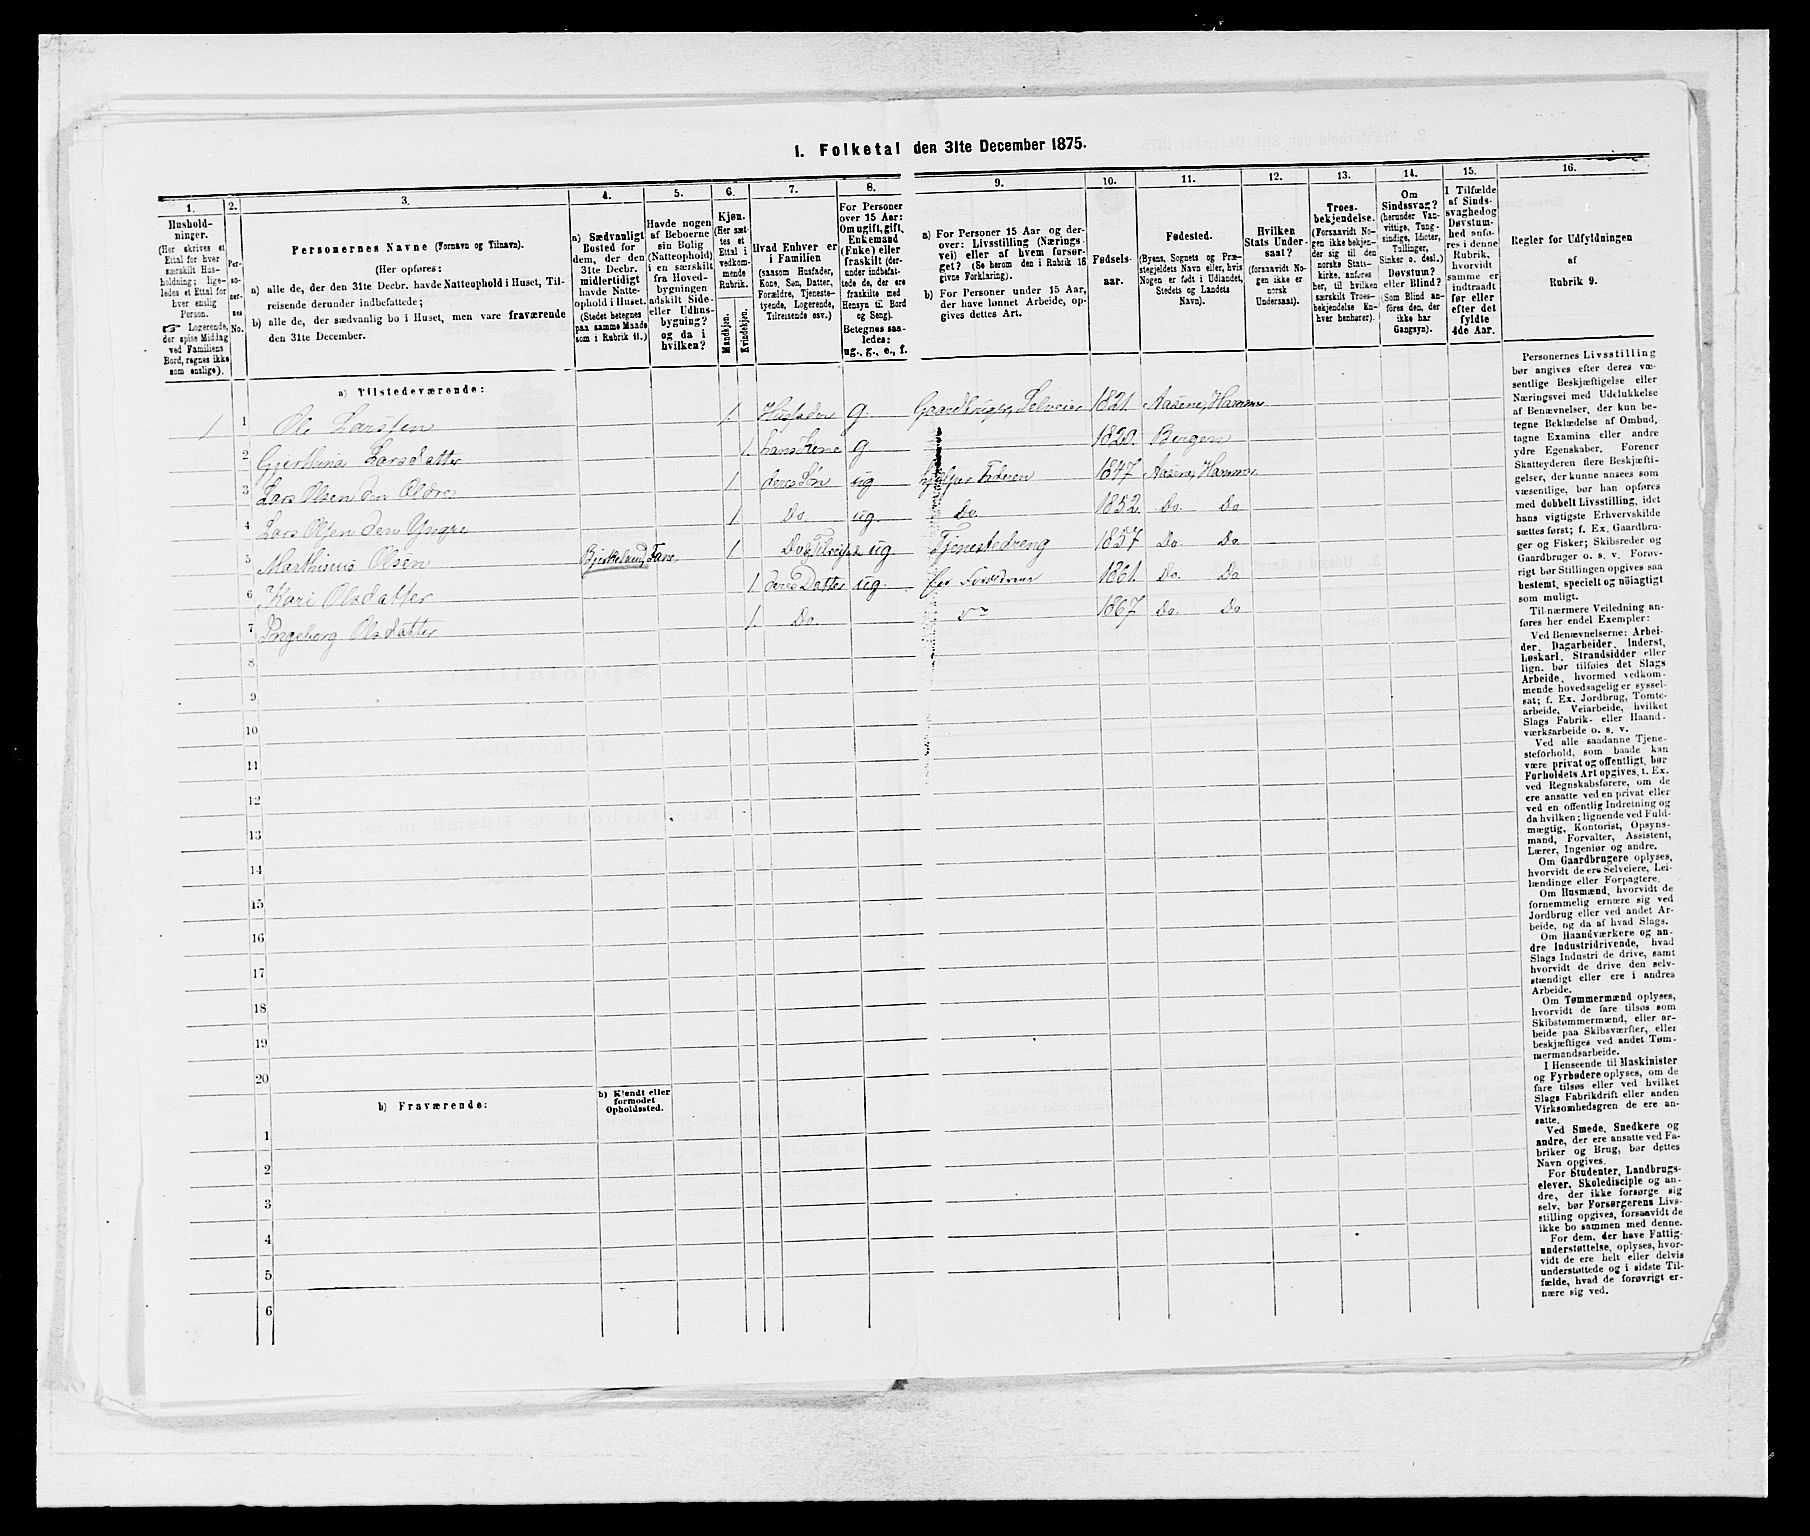 1. Folketal den 31te December 1875.
1.
2.
3.
4.
5.
6.
7.
8.
9.
10.
11.
12.
13.
14.
15.
16.
Hushold-
ninger.
(Her skrives et
Ettal for hver
særskilt Hus-
holdning; lige-
ledes et Ettal for
hver enslig
Person.
☞ Logerende,
der spise Middag
ved Familiens
Bord, regnes ikke
som enslige).
Per-
so-
ner-
nes
No.
Personernes Navne (Fornavn og Tilnavn).
(Her opføres:
a) alle de, der den 31te Decbr. havde Natteophold i Huset, Til-
reisende derunder indbefattede;
b) alle de, der sædvanlig bo i Huset, men vare fraværende
den 31te December.
a) Sædvanligt
Bosted for
dem, der den
31te Decbr.
midlertidigt
havde Natte-
ophold i Huset.
(Stedet betegnes
paa samme Maade
som i Rubrik 11.)
Havde nogen
af Beboerne
sin Bolig
(Natteophold)
i en særskilt
fra Hoved-
bygningen
adskilt Side-
eller Udhus-
bygning?
og da i
hvilken?
Kjøn.
(Her sæt-
tes et
Ettal i
vedkom-
mende
Rubrik.
Mandkjøn.
Kvindekjøn.
Hvad Enhver er
i Familien
(saasom Husfader,
Kone, Søn, Datter,
Forældre, Tjeneste-
tyende, Logerende,
Tilreisende osv.)
For Personer
over 15 Aar:
Om ugift, gift,
Enkemand
(Enke) eller
fraskilt (der-
under indbefat-
tede de, der ere
fraskilte med
Hensyn til Bord
og Seng).
Betegnes saa-
ledes:
ug., g., e., f.
a) For Personer 15 Aar og der-
over: Livsstilling (Nærings-
vei) eller af hvem forsør-
get? (Se herom den i Rubrik 16
givne Forklaring).
b) For Personer under 15 Aar,
der have lønnet Arbeide, op-
gives dettes Art.
Fødsels-
aar.
Fødested.
(Byens, Sognets og Præ-
stegjeldets Navn eller, hvis
Nogen er født i Udlandet,
Stedets og Landets
Navn).
Hvilken
Stats Under-
saat?
(forsaavidt No-
gen ikke er
norsk
Undersaat).
Troes-
bekjendelse.
(Forsaavidt No-
gen ikke bekjen-
der sig til den
norske Stats-
kirke, anføres
her, til hvilken
særskilt Troes-
bekjendelse En-
hver henhører).
Om
Sindssvag?
(herunder Van-
vittige, Tung-
sindige, Idioter,
Tullinger,
Sinker o. desl.)
Døvstum?
eller Blind?
(Som Blind an-
føres den, der
ikke har
Gangsyn).
I Tilfælde
af Sinds-
svaghed og
Døvstum-
hed anfø-
res i denne
Rubrik,
hvorvidt
samme er
indtraadt
før eller
efter det
fyldte
4de Aar.
Regler for Udfyldningen
af
Rubrik 9.
a) Tilstedeværende:
1 1 Ole Larssen 1. Husfader g. Gaardbruger, Selveier 1821. Aasene, Hammer
2 Gjerthina Larsdatter 1. hans Kone g. 1820. Bergen
3 Lars Olsen den Ældre 1 deres Søn ug hjelper Faderen 1847 Aasene, Hammer
4 Lars Olsen den Yngre 1 Do. ug. Do. 1852. Do. Do
5 Marthinus Olsen Birkeland, Fane. 1 Do. ug. Tjenestedreng 1857 Do. Do
6 Kari Olsdatter 1 deres Datter ug. 1861. Do. Do.
7 Ingeborg Olsdatter 1. Do. 1867 Do. Do
8
9
10
11
12
13
14
15
16
17
18
19
20
b) Fraværende:
b) Kjendt eller
formodet
Opholdssted.
1
2
3
4
5
6
Personernes Livsstilling
bør angives efter deres væ-
sentlige Beskjæftigelse eller
Næringsvei med Udelukkelse
af Benævnelser, der kun be-
tegne Beklædelse af Ombud,
tagne Examina eller andre
ydre Egenskaber. Forener
Skatteyderen flere Beskjæfti-
gelser, der kunne ansees som
væsentlige, bør han opføres
med dobbelt Livsstilling, idet
hans vigtigste Erhvervskilde
sættes først; f. Ex. Gaardbru-
ger og Fisker; Skibsreder og
Gaardbruger o. s. v. Forøv-
rigt bør Stillingen opgives saa
bestemt, specielt og nøiagtigt
som muligt.
Til nærmere Veiledning an-
føres her endel Exempler:
Ved Benævnelserne: Arbei-
der, Dagarbeider, Inderst,
Løskarl, Strandsidder eller
lign. bør tilføies det Slags
Arbeide, hvormed vedkom-
mende hovedsagelig er syssel-
sat; f. Ex. Jordbrug, Tomte-
arbeide, Veiarbeide, hvilket
Slags Fabrik- eller Haand-
værksarbeide o. s. v.
Ved alle saadanne Tjene-
steforhold, som baade kan
være privat og offentligt, bør
Forholdets Art opgives, t. Ex.
ved Regnskabsførere, om de
ere ansatte ved en privat eller
ved en offentlig Indretning og
da hvilken; lignende ved Fuld-
mægtig, Kontorist, Opsyns-
mand, Forvalter, Assistent,
Lærer, Ingeniør og andre.
Om Gaardbrugere oplyses,
hvorvidt de ere Selveiere, Lei-
lændinge eller Forpagtere.
Om Husmænd, hvorvidt de
fornemmelig ernære sig ved
Jordbrug eller ved andet Ar-
beide, og da af hvad Slags.
Om Haandværkere og an-
dre Industridrivende, hvad
Slags Industri de drive, samt
hvorvidt de drive den selv-
stændigt eller ere i andres
Arbeide.
Om Tømmermænd oplyses,
hvorvidt de fare tilsøs som
Skibstømmermænd, eller ar-
beide paa Skibsværfter, eller
beskjæftiges ved andet Tøm-
mermandsarbeide.
I Henseende til Maskinister
og Fyrbødere oplyses, om de
fare tilsøs eller ved hvilket
Slags Fabrikdrift eller anden
Virksomhedsgren de ere an-
satte.
Ved Smede, Snedkere og
andre, der ere ansatte ved Fa-
briker og Brug, bør dettes
Navn opgives.
For Studenter, Landbrugs-
elever, Skoledisciple og an-
dre, der ikke forsørge sig
selv, bør Forsørgerens Livs-
stilling opgives, forsaavidt de
ikke bo sammen med denne.
For dem, der have Fattig-
understøttelse, oplyses, hvor-
vidt de ere helt eller delvis
understøttede og i sidste Til-
fælde, hvad de forøvrigt er-
nære sig ved.